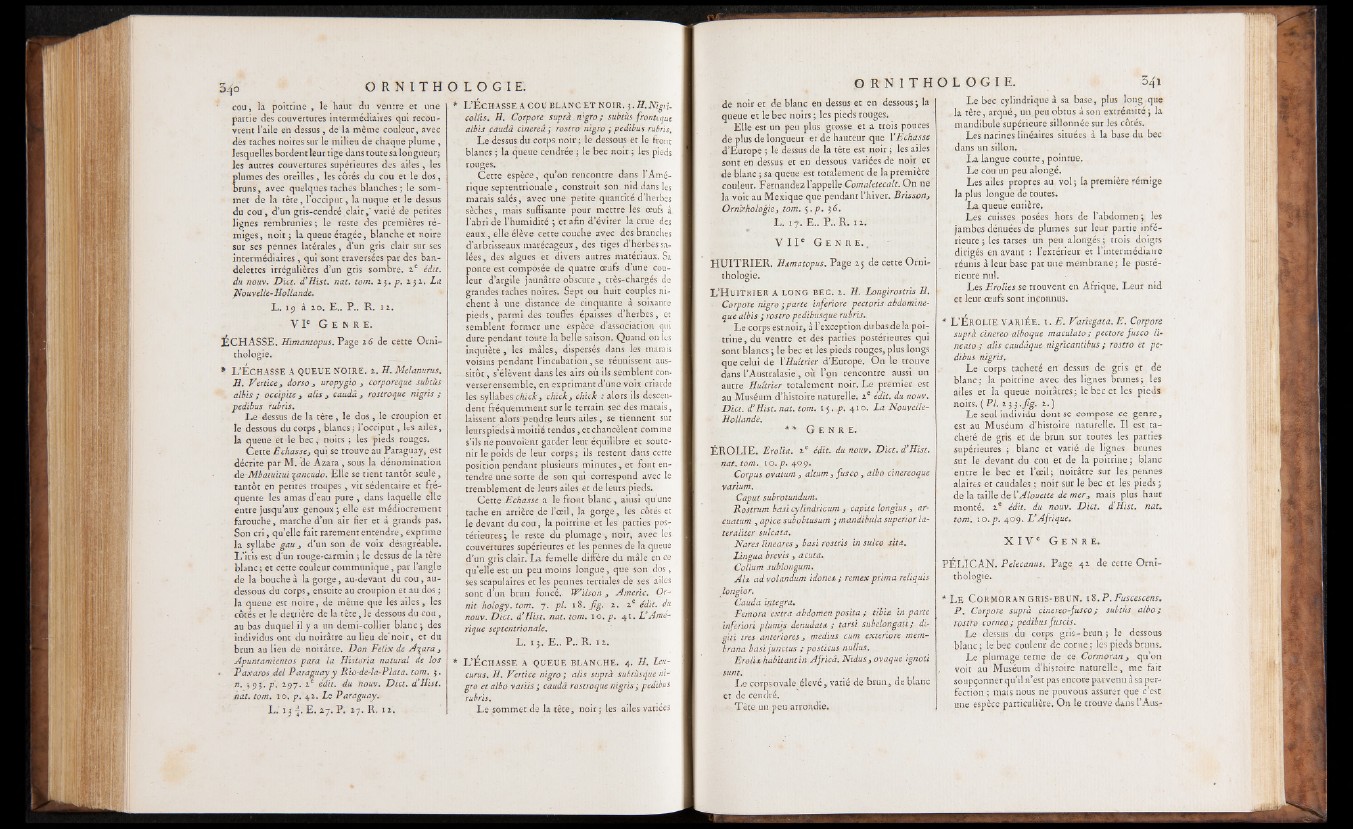 340 ORNITHOLOGIE.
cou, la poitrine, le haut du ventre et une
partie des couvertures intermédiaires qui recou-
vrent l'aile en dessus, de la même couleur, avec
des taches noires sur le milieu de chaque plume,
lesquelles bordent leur tige dans toute sa longueur;
les autres couvertures supérieures des ailes, les
plumes des oreilles, les côtés du cou et le dos,
bruns, avec quelques taches blanches; le som-
met de la tête, l'occiput, la nuque et le dessus
du cou, d'un gris-cendré clair, varié de petites
lignes rembrunies; le reste des premières ré-
miges, noir; la queue étagée, blanche et noire
sur ses pennes latérales, d'un gris clair sur ses
intermédiaires, qui sont traversées par des ban-
delettes irrégulières d'un gris sombre. 2e édit.
du nouv. Dict. d'Hist. nat. tom. 23. p. 232. La
Nouvelle-Hollande.
L. 19 à 20. E.. P.. R. 12.
VIe GENRE.
ÉCHASSE. Himantopus. Page 26 de cette Orni-
thologie.
* L'ÉCHASSE A QUEUE NOIRE. 2. H. Melanurus.
H. Vertice, dorso, uropygio, corporeque subtùs
albis; occipite, alis, caudâ, rostroque nigris;
pedibus rubris.
Le dessus de la tête, le dos, le croupion et
le dessous du corps, blancs; l'occiput, les ailes,
la queue et le bec, noirs; les pieds rouges.
Cette Echasse, qui se trouve au Paraguay, est
décrite par M. de Azara, sous la dénomination
de Mbatuitui zancudo. Elle se tient tantôt seule,
tantôt en petites troupes, vit sédentaire et fré-
quente les amas d'eau pure, dans laquelle elle
entre jusqu'aux genoux; elle est médiocrement
farouche, marche d'un air fier et à grands pas.
Son cri, qu'elle fait rarement entendre, exprime
la syllabe gau, d'un son de voix désagréable.
L'iris est d'un rouge-carmin; le dessus de la tête
blanc; et cette couleur communique, par l'angle
de la bouche à la gorge, au-devant du cou, au-
dessous du corps, ensuite au croupion et au dos;
la queue est noire, de même que les ailes, les
côtés et le derrière de la tête, le dessus du cou,
au bas duquel il y a un demi-collier blanc; des
individus ont du noirâtre au lieu de noir, et du
brun au lieu de noirâtre. Don Felix de Azara,
Apuntamientos para la Historia natural de los
Paxaros del Paraguay y Rio-de-la-Plata. tom. 3.
n. 393. p. 297. 2e édit. du nouv. Dict. d'Hist.
nat. tom. 10. p. 42. Le Paraguay.
L. 13 3/4. E. 27. P. 27. R. 12.
* L'ÉCHASSE A COU BLANC ET NOIR. 3. H. Nigri-
collis. H. Corpore suprà nigro; subtùs fronteque
albis caudâ cinereâ; rostro nigro; pedibus rubris.
Le dessus du corps noir; le dessous et le front
blancs; la queue cendrée; le bec noir; les pieds
rouges.
Cette espèce, qu'on rencontre dans l'Amé-
rique septentrionale, construit son nid dans les
marais salés, avec une petite quantité d'herbes
sèches, mais suffisante pour mettre les œufs à
l'abri de l'humidité; et afin d'éviter la crue des
eaux, elle élève cette couche avec des branches
d'arbrisseaux marécageux, des tiges d'herbes sa-
lées, des algues et divers autres matériaux. Sa
ponte est composée de quatre œufs d'une cou-
leur d'argile jaunâtre obscure, très-chargés de
grandes taches noires. Sept ou huit couples ni-
chent à une distance de cinquante à soixante
pieds, parmi des touffes épaisses d'herbes, et
semblent former une espèce d'association qui
dure pendant toute la belle saison. Quand on les
inquiète, les mâles, dispersés dans les marais
voisins pendant l'incubation, se réunissent aus-
sitôt, s'élèvent dans les airs où ils semblent con-
verser ensemble, en exprimant d'une voix criarde
les syllabes chick, chick, chick : alors ils descen-
dent fréquemment sur le terrain sec des marais,
laissent alors pendre leurs ailes, se tiennent sur
leurs pieds à moitié tendus, et chancèlent comme
s'ils ne pouvoient garder leur équilibre et soute-
nir le poids de leur corps; ils restent dans cette
position pendant plusieurs minutes, et font en-
tendre une sorte de son qui correspond avec le
tremblement de leurs ailes et de leurs pieds.
Cette Echasse a le front blanc, ainsi qu'une
tache en arrière de l'œil, la gorge, les côtés et
le devant du cou, la poitrine et les parties pos-
térieures; le reste du plumage, noir, avec les
couvertures supérieures et les pennes de la queue
d'un gris clair. La femelle diffère du mâle en ce
qu'elle est un peu moins longue, que son dos,
ses scapulaires et les pennes tertiales de ses ailes
sont d'un brun foncé. Wilson, Americ. Or-
nit hology. tom. 7. pl. 18. fig. 2. 2e édit. du
nouv. Dict. d'Hist. nat. tom. 10. p. 41. L'Amé-
rique septentrionale.
L. 13. E.. P.. R. 12.
* L'ÉCHASSE A QUEUE BLANCHE. 4. H. Leu-
curus. H. Vertice nigro; alis suprà subtùsque ni-
gro et albo variis; caudâ rostroque nigris; pedibus
rubris.
Le sommet de la tête, noir; les ailes variées
ORNITHOLOGIE. 341
de noir et de blanc en dessus et en dessous; la
queue et le bec noirs; les pieds rouges.
Elle est un peu plus grosse et a trois pouces
de plus de longueur et de hauteur que l'Echasse
d'Europe; le dessus de la tête est noir; les ailes
sont en dessus et en dessous variées de noir et
de blanc; sa queue est totalement de la première
couleur. Fernandez l'appelle Comaltecatl. On ne
la voit au Mexique que pendant l'hiver. Brisson,
Ornithologie, tom. 5. p. 36.
L. 17. E.. P.. R. 12.
VIIe GENRE.
HUITRIER. Hæmatopus. Page 25 de cette Orni-
thologie.
L'HUITRIER A LONG BEC. 2. H. Longirostris H.
Corpore nigro; parte inferiore pectoris abdomine-
que albis; rostro pedibusque rubris.
Le corps est noir, à l'exception du bas de la poi-
trine, du ventre et des parties postérieures qui
sont blancs; le bec et les pieds rouges, plus longs
que celui de l'Huîtrier d'Europe. On le trouve
dans l'Australasie, où l'on rencontre aussi un
autre Huîtrier totalement noir. Le premier est
au Muséum d'histoire naturelle. 2e édit. du nouv.
Dict. d'Hist. nat. tom. 15. p. 410. La Nouvelle-
Hollande.
** GENRE.
ÉROLIE. Erolia. 2e édit. du nouv. Dict. d'Hist.
nat. tom. 10. p. 409.
Corpus ovatum, altum, fusco, albo cinereoque
varium.
Caput subrotundum.
Rostrum basi cylindricum, capite longius, ar-
cuatum, apice subobtusum; mandibula superior la-
teraliter sulcata.
Nares lineares, basi rostris in sulco sitæ.
Lingua brevis, acuta.
Collum sublongum.
Alæ ad volandum idoneæ; remex prima reliquis
longior.
Cauda integra.
Femora extra abdomen posita; tibiæ in parte
inferiori plumis denudatæ; tarsi subelongati; di-
giti tres anteriores, medius cum exteriore mem-
brana basi junctus; posticus nullus.
Eroliæ habitant in Africâ. Nidus, ovaque ignoti
sunt.
Le corps ovale, élevé, varié de brun, de blanc
et de cendré.
Tête un peu arrondie.
Le bec cylindrique à sa base, plus long que
la tête, arqué, un peu obtus à son extrémité; la
mandibule supérieure sillonnée sur les côtés.
Les narines linéaires situées à la base du bec
dans un sillon.
La langue courte, pointue.
Le cou un peu alongé.
Les ailes propres au vol; la première rémige
la plus longue de toutes.
La queue entière.
Les cuisses posées hors de l'abdomen; les
jambes dénuées de plumes sur leur partie infé-
rieure; les tarses un peu alongés; trois doigts
dirigés en avant : l'extérieur et l'intermédiaire
réunis à leur base par une membrane; le posté-
rieur nul.
Les Erolies se trouvent en Afrique. Leur nid
et leur œufs sont inconnus.
* L'ÉROLIE VARIÉE. 1. E. Variegata. E. Corpore
suprà cinereo alboque maculato; pectore fusco li-
neato; alis caudâque nigricantibus; rostro et pe-
dibus nigris.
Le corps tacheté en dessus de gris et de
blanc; la poitrine avec des lignes brunes; les
ailes et la queue noirâtres; le bec et les pieds
noirs. (Pl. 233. fig. 2.)
Le seul individu dont se compose ce genre,
est au Muséum d'histoire naturelle. Il est ta-
cheté de gris et de brun sur toutes les parties
supérieures; blanc et varié de lignes brunes
sur le devant du cou et de la poitrine; blanc
entre le bec et l'œil; noirâtre sur les pennes
alaires et caudales; noir sur le bec et les pieds;
de la taille de l'Alouette de mer, mais plus haut
monté. 2e édit. du nouv. Dict. d'Hist. nat.
tom. 10. p. 409. L'Afrique.
XIVe GENRE.
PÉLICAN. Pelecanus. Page 42 de cette Orni-
thologie.
* LE CORMORAN GRIS-BRUN. 18. P. Fuscescens.
P. Corpore suprà cinereo-fusco; subtùs albo;
rostro corneo; pedibus fuscis.
Le dessus du corps gris-brun; le dessous
blanc; le bec couleur de corne; les pieds bruns.
Le plumage terne de ce Cormoran, qu'on
voit au Muséum d'histoire naturelle, me fait
soupçonner qu'il n'est pas encore parvenu à sa per-
fection; mais nous ne pouvons assurer que c'est
une espèce particulière. On le trouve dans l'Aus-